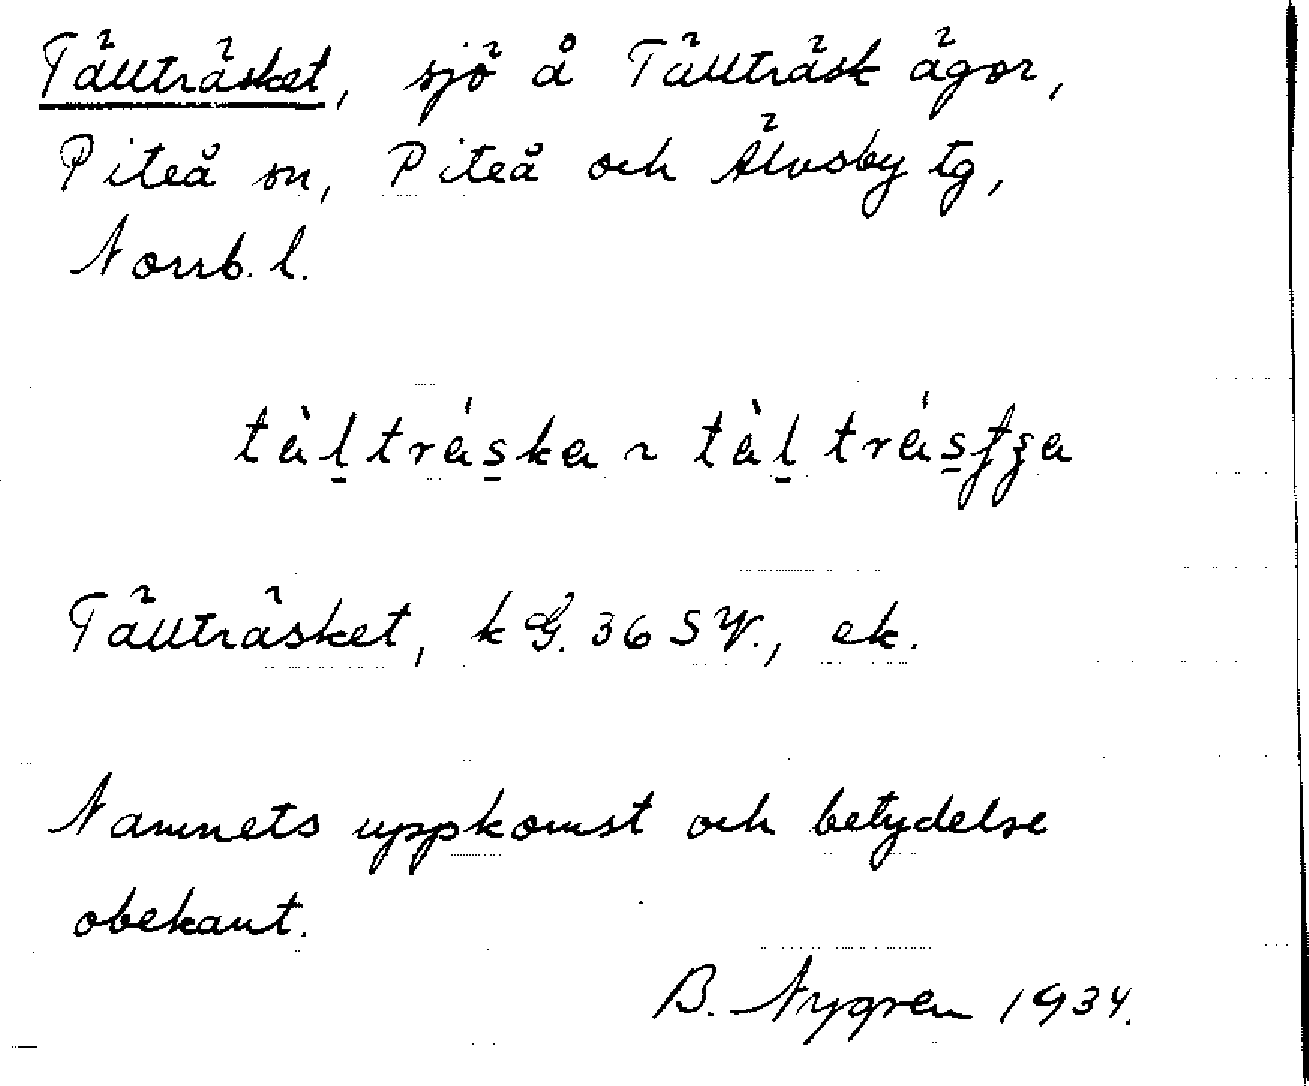 Tällträsket, sjö å Tällträsk ägor,
Piteå sn, Piteå och Älvsby tg,
Norrb. l.
Tällträsket, k G. 36 SV., ek.
Namnets uppkomst och betydelse
obekant.
B. Nygren 1934.